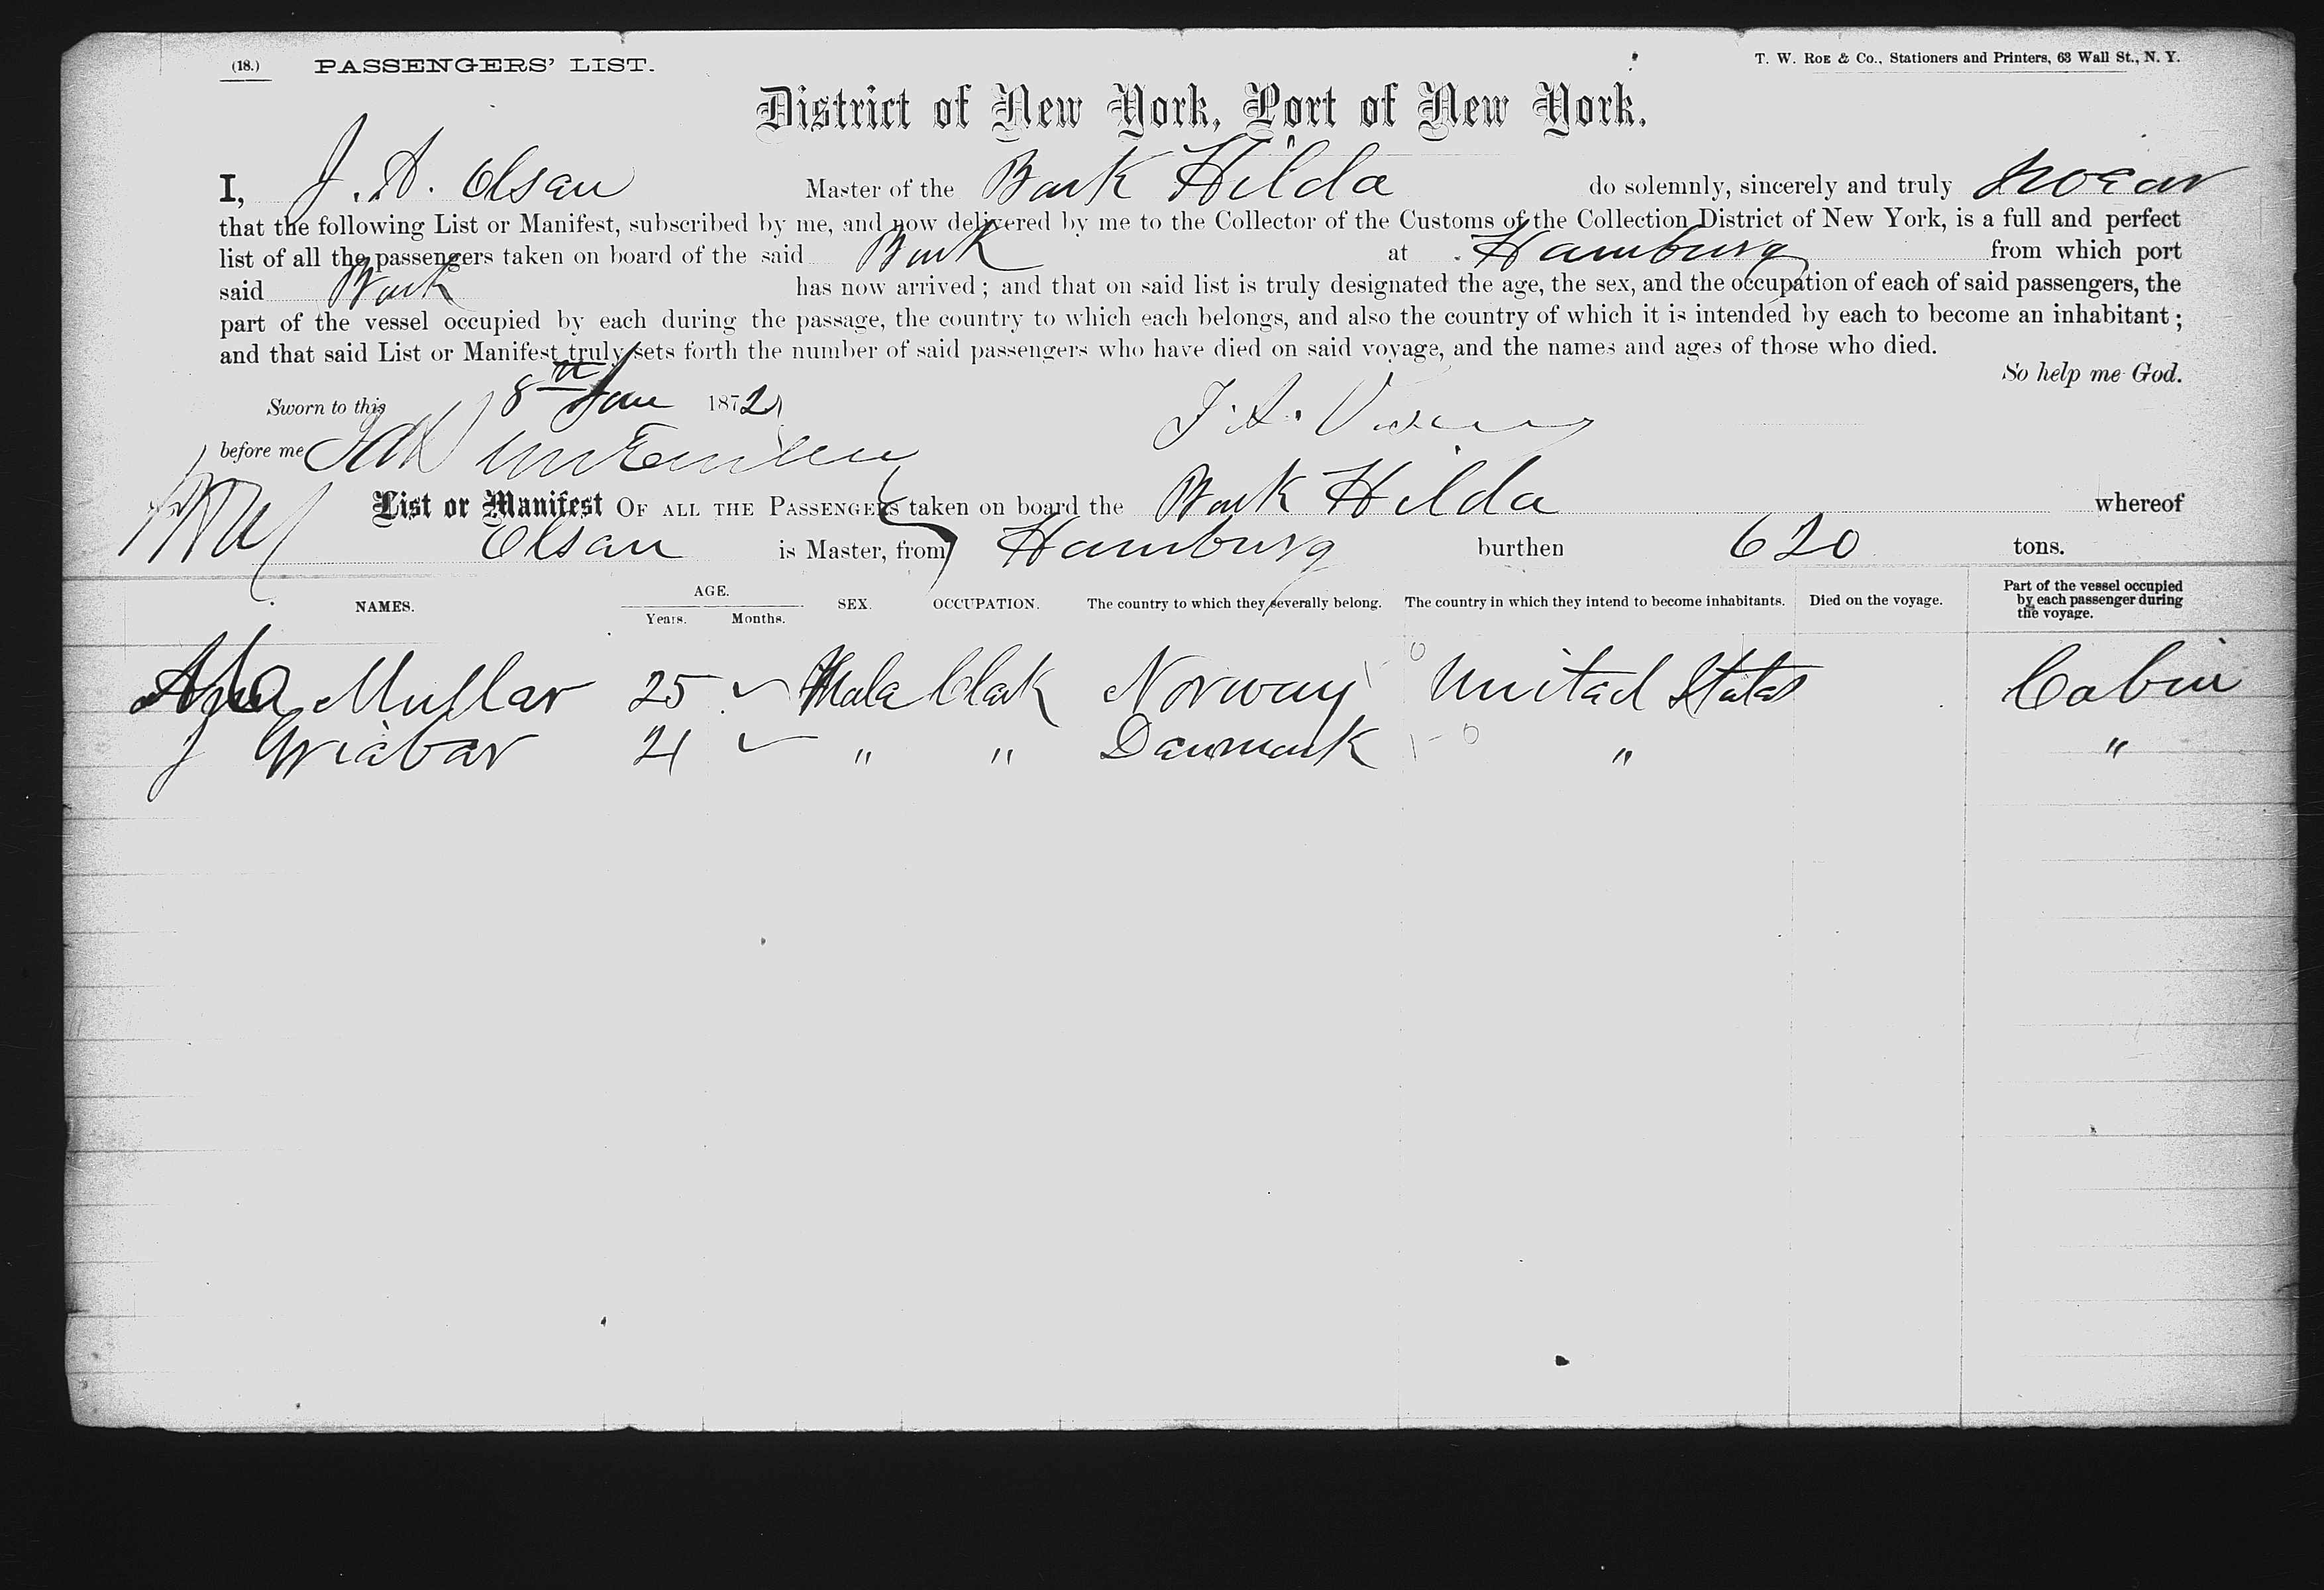 (18.) PASSENGERS' LIST. T. W. ROE & Co., Stationers and Printers, 63 Wall St., N. Y.
District of New York, Port of New York.
I, J. A. Olsen Master of the Bark Hilda do solemnly, sincerely and truly swear
that the following List or Manifest, subscribed by me, and now delivered by me to the Collector of the Customs of the Collection District of New York, is a full and perfect
list of all the passengers taken on board of the said Bark at Hamburg from which port
said Bark has now arrived; and that on said list is truly designated the age, the sex, and the occupation of each of said passengers, the
part of the vessel occupied by each during the passage, the country to which each belongs, and also the country of which it is intended by each to become an inhabitant;
and that said List or Manifest truly sets forth the number of said passengers who have died on said voyage, and the names and ages of those who died.
So help me God.
Sworn to this 8th Jan 1872
before me
List or Manifest OF ALL THE PASSENGERS taken on board the Bark Hilda whereof
Olsen is Master, from Hamburg burthen 620 tons.
NAMES. AGE. Years. Months. SEX. OCCUPATION. The country to which they severally belong. The country in which they intend to become inhabitants. Died on the voyage. Part of the vessel occupied by each passenger during the voyage.
Muller 25 Male Clerk Norway United States Cabin
J Grieber 21 " " Denmark " "